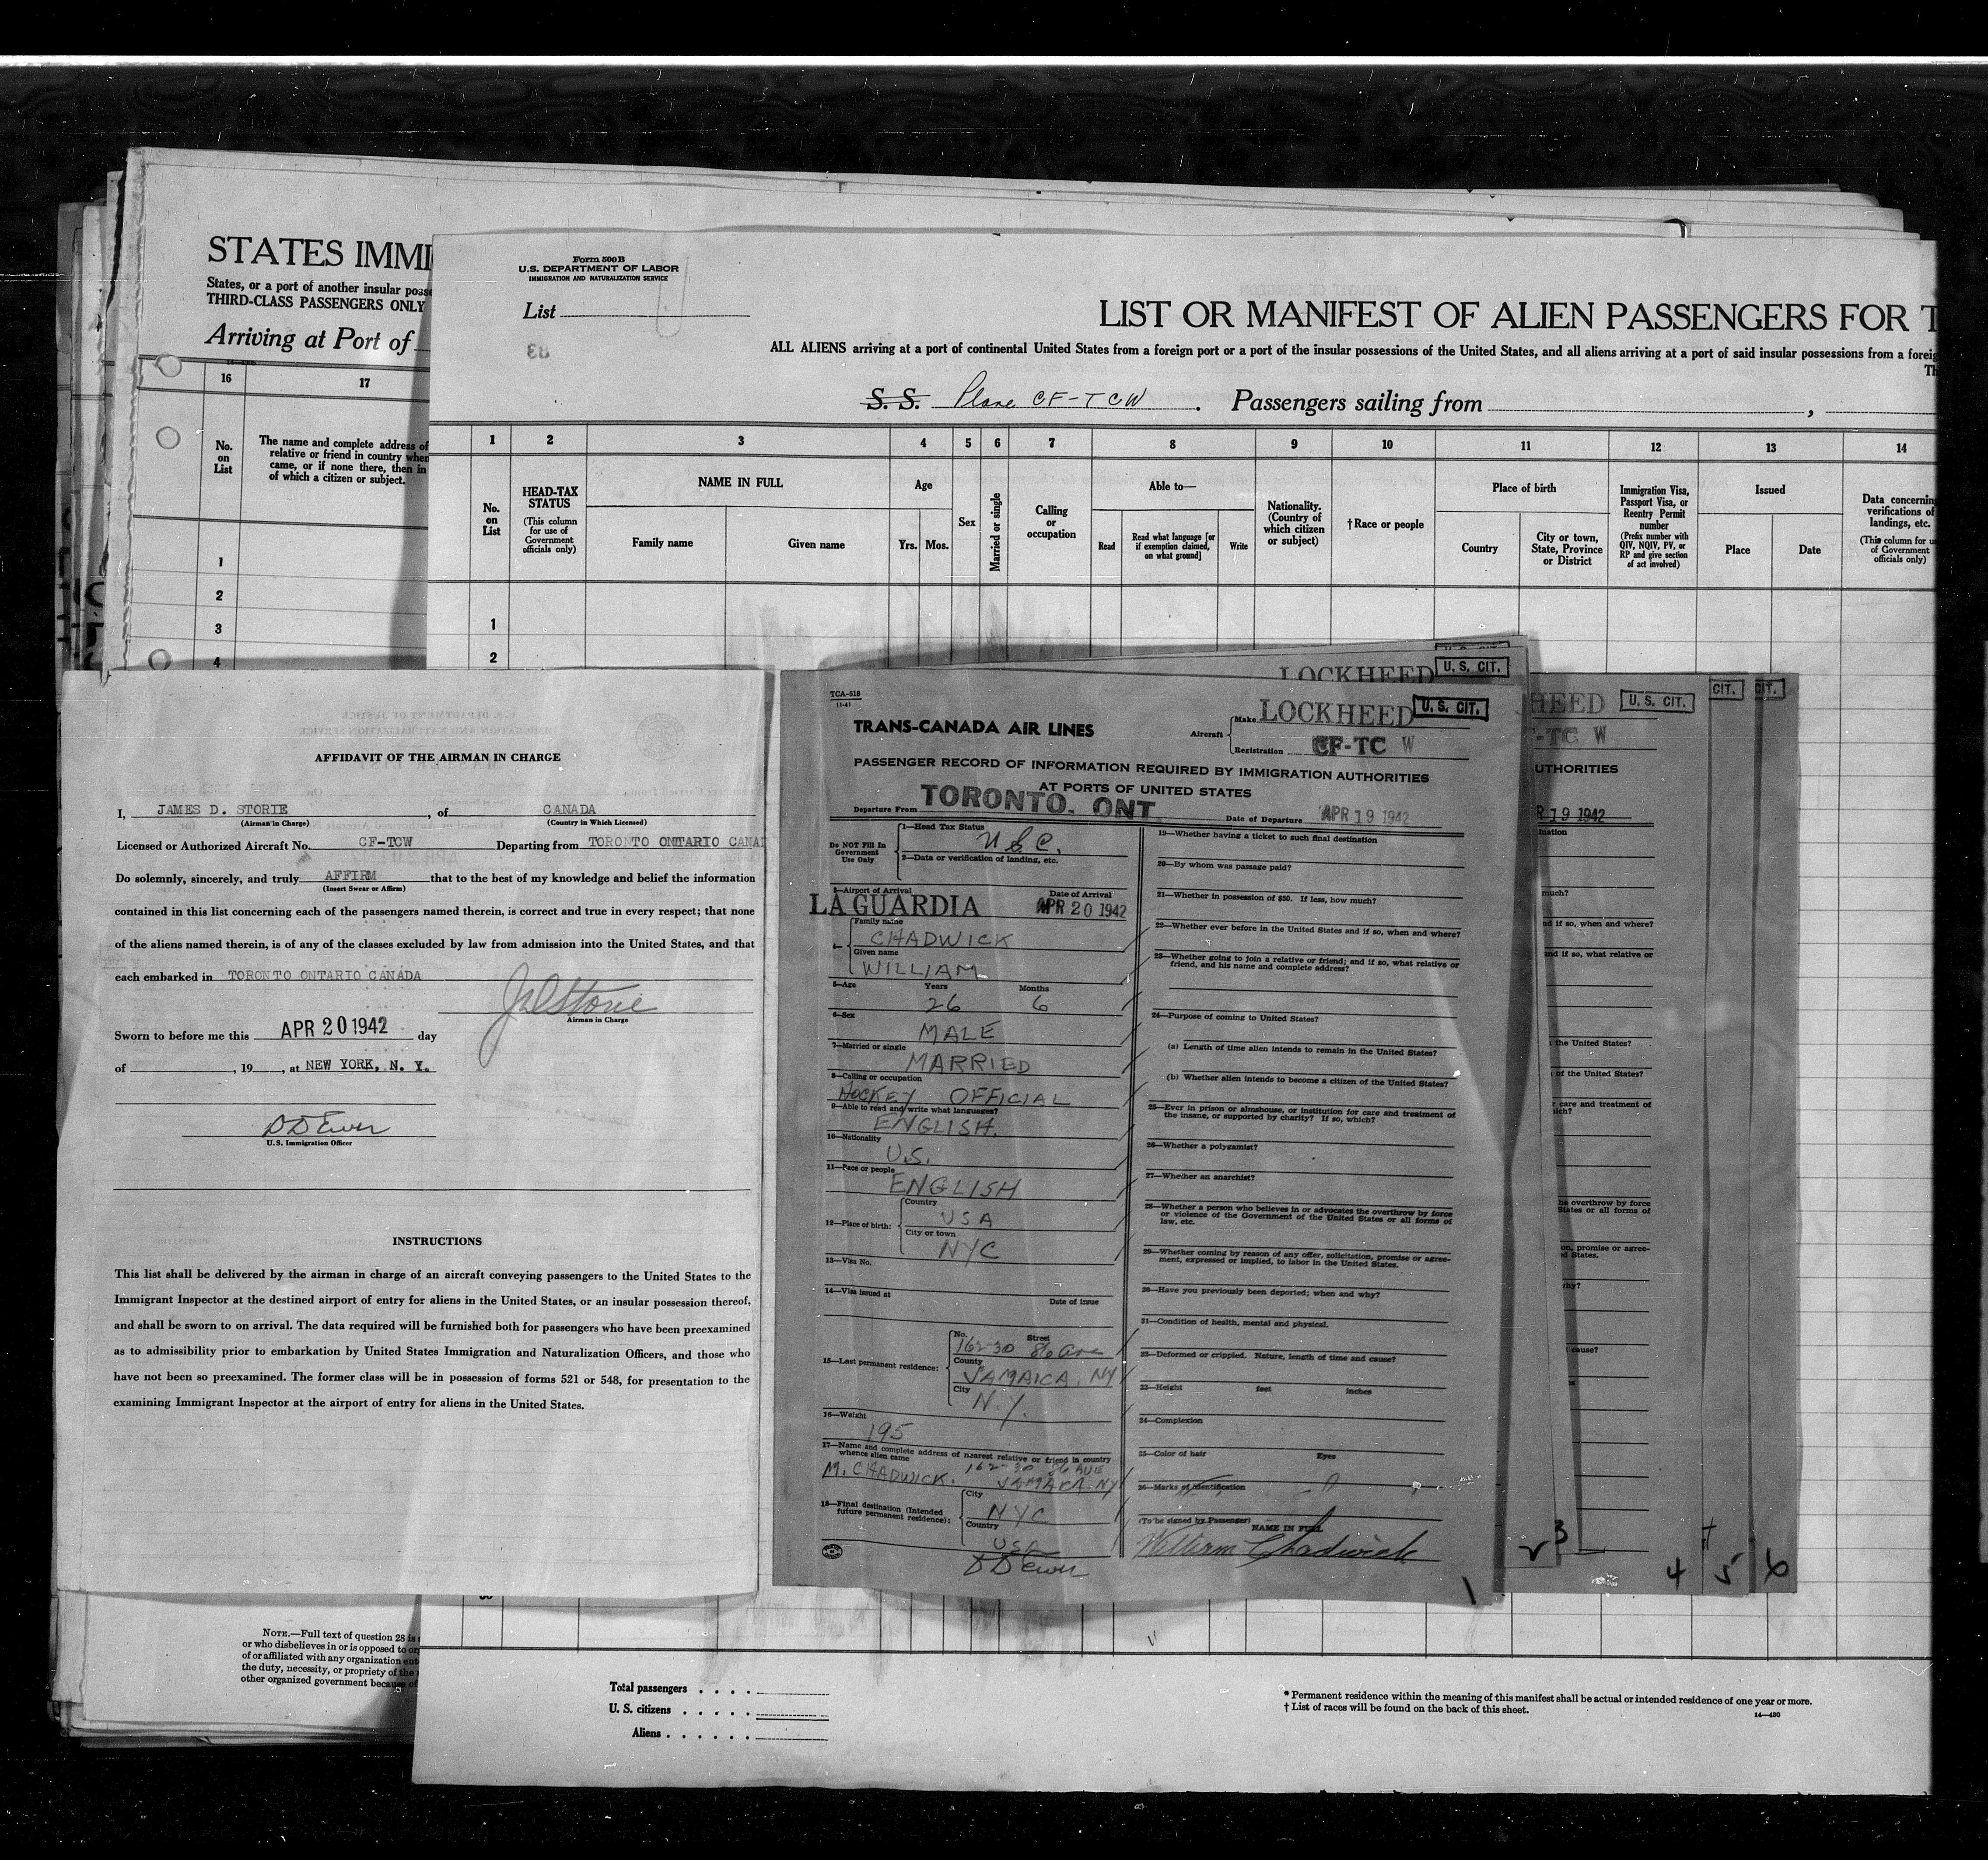 STATES IMMI
States, or a port of another insular posse
THIRD-CLASS PASSENGERS ONLY
Arriving at Port of
16
17
No.
on
List
The name and complete address of
relative or friend in country when
came, or if none there, then in
of which a citizen or subject.
1
2
3
4
NOTE.—Full text of question 28 is
or who disbelieves in or is opposed to or
of or affiliated with any organization ente
the duty, necessity, or propriety of the
other organized government because of
Form 500B
U.S. DEPARTMENT OF LABOR
IMMIGRATION AND NATURALIZATION SERVICE
List
83
LIST OR MANIFEST OF ALIEN PASSENGERS FOR T
ALL ALIENS arriving at a port of continental United States from a foreign port or a port of the insular possessions of the United States, and all aliens arriving at a port of said insular possessions from a foreig
Th
S. S. Plane CF-TCW . Passengers sailing from ,
1 2 3 4 5 6 7 8 9 10 11 12 13 14
No.
on
List
HEAD-TAX
STATUS
(This column
for use of
Government
officials only)
NAME IN FULL
Family name
Given name
Age
Yrs. Mos.
Sex
Married or single
Calling
or
occupation
Able to—
Read
Read what language [or
if exemption claimed,
on what ground]
Write
Nationality.
(Country of
which citizen
or subject)
†Race or people
Place of birth
Country
City or town,
State, Province
or District
Immigration Visa,
Passport Visa, or
Reentry Permit
number
(Prefix number with
QIV, NQIV, PV, or
RP and give section
of act involved)
Issued
Place
Date
Data concerning
verifications of
landings, etc.
(This column for u
of Government
officials only)
1
2
30
Total passengers . . . .
U. S. citizens . . . . .
Aliens . . . . . .
* Permanent residence within the meaning of this manifest shall be actual or intended residence of one year or more.
† List of races will be found on the back of this sheet.
14—430
AFFIDAVIT OF THE AIRMAN IN CHARGE
I, JAMES D. STORIE , of CANADA
(Airman in Charge)
(Country in Which Licensed)
Licensed or Authorized Aircraft No. CF-TCW Departing from TORONTO ONTARIO CANA
Do solemnly, sincerely, and truly AFFIRM that to the best of my knowledge and belief the information
(Insert Swear or Affirm)
contained in this list concerning each of the passengers named therein, is correct and true in every respect; that none
of the aliens named therein, is of any of the classes excluded by law from admission into the United States, and that
each embarked in TORONTO ONTARIO CANADA
JDStorie
Airman in Charge
Sworn to before me this APR 20 1942 day
of , 19 , at NEW YORK, N. Y.
D D Ewer
U.S. Immigration Officer
INSTRUCTIONS
This list shall be delivered by the airman in charge of an aircraft conveying passengers to the United States to the
Immigrant Inspector at the destined airport of entry for aliens in the United States, or an insular possession thereof,
and shall be sworn to on arrival. The data required will be furnished both for passengers who have been preexamined
as to admissibility prior to embarkation by United States Immigration and Naturalization Officers, and those who
have not been so preexamined. The former class will be in possession of forms 521 or 548, for presentation to the
examining Immigrant Inspector at the airport of entry for aliens in the United States.
LOCKHEED U. S. CIT.
TCA-518
11-41
TRANS-CANADA AIR LINES
Aircraft
Make LOCKHEED U. S. CIT.
Registration CF-TC W
PASSENGER RECORD OF INFORMATION REQUIRED BY IMMIGRATION AUTHORITIES
AT PORTS OF UNITED STATES
Departure From TORONTO, ONT Date of Departure APR 19 1942
Do NOT Fill In
Government
Use Only
1—Head Tax Status
U.S.C.
2—Data or verification of landing, etc.
3—Airport of Arrival Date of Arrival
LA GUARDIA APR 20 1942
4—
Family name
CHADWICK
Given name
WILLIAM
5—Age Years Months
26 6
6—Sex
MALE
7—Married or single
MARRIED
8—Calling or occupation
HOCKEY OFFICIAL
9—Able to read and/or write what languages?
ENGLISH.
10—Nationality
U.S.
11—Race or people
ENGLISH
12—Place of birth:
Country
USA
City or town
NYC
13—Visa No.
14—Visa issued at
Date of issue
15—Last permanent residence:
No. Street
162-30 86 Ave
County
JAMAICA, NY
City
N.Y.
16—Weight
195
17—Name and complete address of nearest relative or friend in country
whence alien came
M. CHADWICK. 162-30 86 AVE
JAMAICA NY
18—Final destination (Intended
future permanent residence):
City
NYC
Country
USA
D D Ewer
19—Whether having a ticket to such final destination
20—By whom was passage paid?
21—Whether in possession of $50. If less, how much?
22—Whether ever before in the United States and if so, when and where?
23—Whether going to join a relative or friend; and if so, what relative or
friend, and his name and complete address?
24—Purpose of coming to United States?
(a) Length of time alien intends to remain in the United States?
(b) Whether alien intends to become a citizen of the United States?
25—Ever in prison or almshouse, or institution for care and treatment of
the insane, or supported by charity? If so, which?
26—Whether a polygamist?
27—Whether an anarchist?
28—Whether a person who believes in or advocates the overthrow by force
or violence of the Government of the United States or all forms of
law, etc.
29—Whether coming by reason of any offer, solicitation, promise or agree-
ment, expressed or implied, to labor in the United States.
30—Have you previously been deported; when and why?
31—Condition of health, mental and physical.
32—Deformed or crippled. Nature, length of time and cause?
33—Height feet inches
34—Complexion
35—Color of hair Eyes
36—Marks of identification
(To be signed by Passenger) NAME IN FULL
William Chadwick
1
HEED U. S. CIT.
-TC W
UTHORITIES
R 19 1942
ination
much?
nd if so, when and where?
and if so, what relative or
the United States?
of the United States?
r care and treatment of
hich?
he overthrow by force
States or all forms of
on, promise or agree-
ed States.
why?
cause?
CIT.
CIT.
2 3 4 5 6